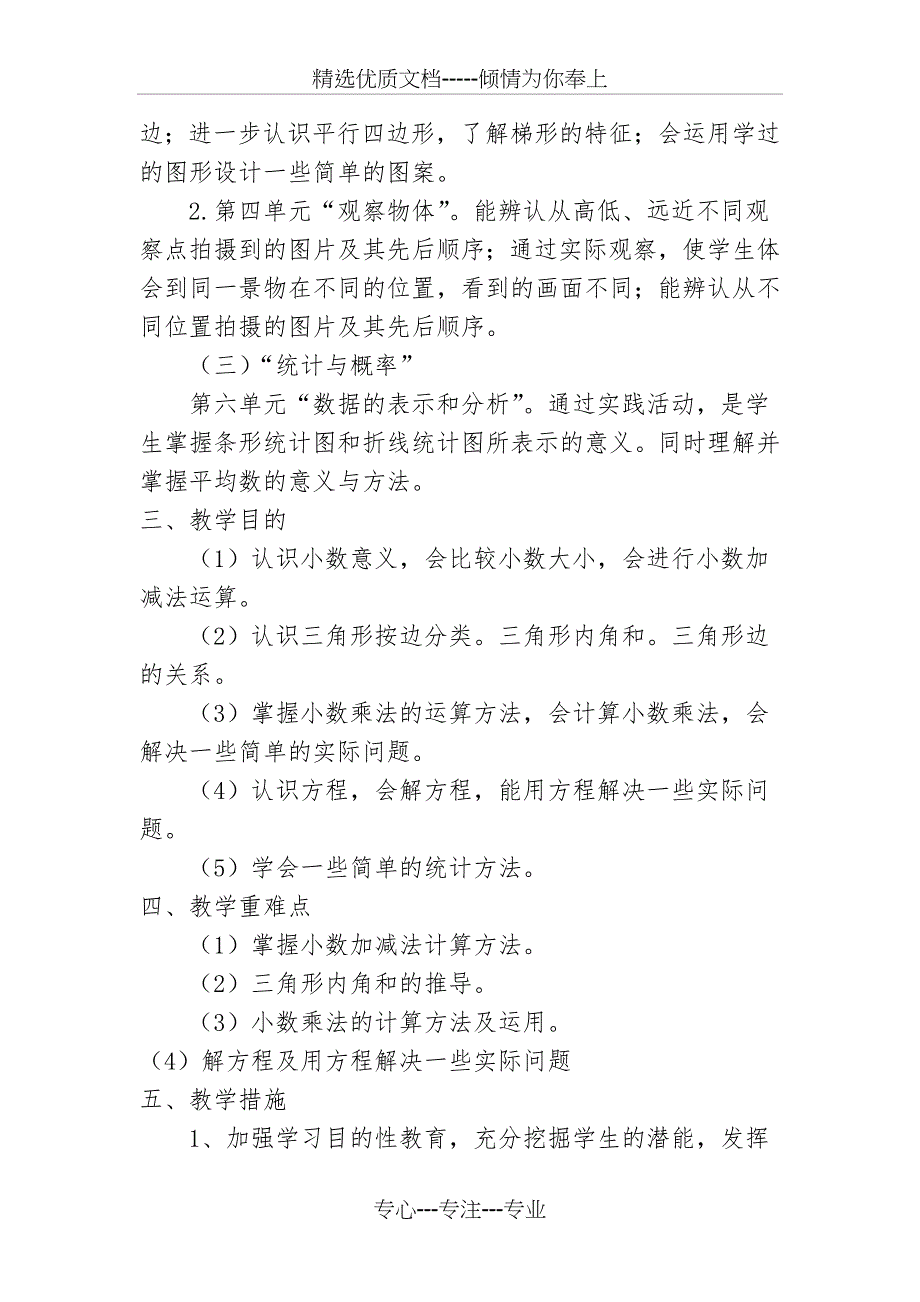 精选优质文档-----倾情为你奉上
边；进一步认识平行四边形，了解梯形的特征；会运用学过
的图形设计一些简单的图案。
2.第四单元“观察物体”。能辨认从高低、远近不同观
察点拍摄到的图片及其先后顺序；通过实际观察，使学生体
会到同一景物在不同的位置，看到的画面不同；能辨认从不
同位置拍摄的图片及其先后顺序。
（三）“统计与概率”
第六单元“数据的表示和分析”。通过实践活动，是学
生掌握条形统计图和折线统计图所表示的意义。同时理解并
掌握平均数的意义与方法。
三、教学目的
（1）认识小数意义，会比较小数大小，会进行小数加
减法运算。
（2）认识三角形按边分类。三角形内角和。三角形边
的关系。
（3）掌握小数乘法的运算方法，会计算小数乘法，会
解决一些简单的实际问题。
（4）认识方程，会解方程，能用方程解决一些实际问
题。
（5）学会一些简单的统计方法。
四、教学重难点
（1）掌握小数加减法计算方法。
（2）三角形内角和的推导。
（3）小数乘法的计算方法及运用。
（4）解方程及用方程解决一些实际问题
五、教学措施
1、加强学习目的性教育，充分挖掘学生的潜能，发挥
专心---专注---专业